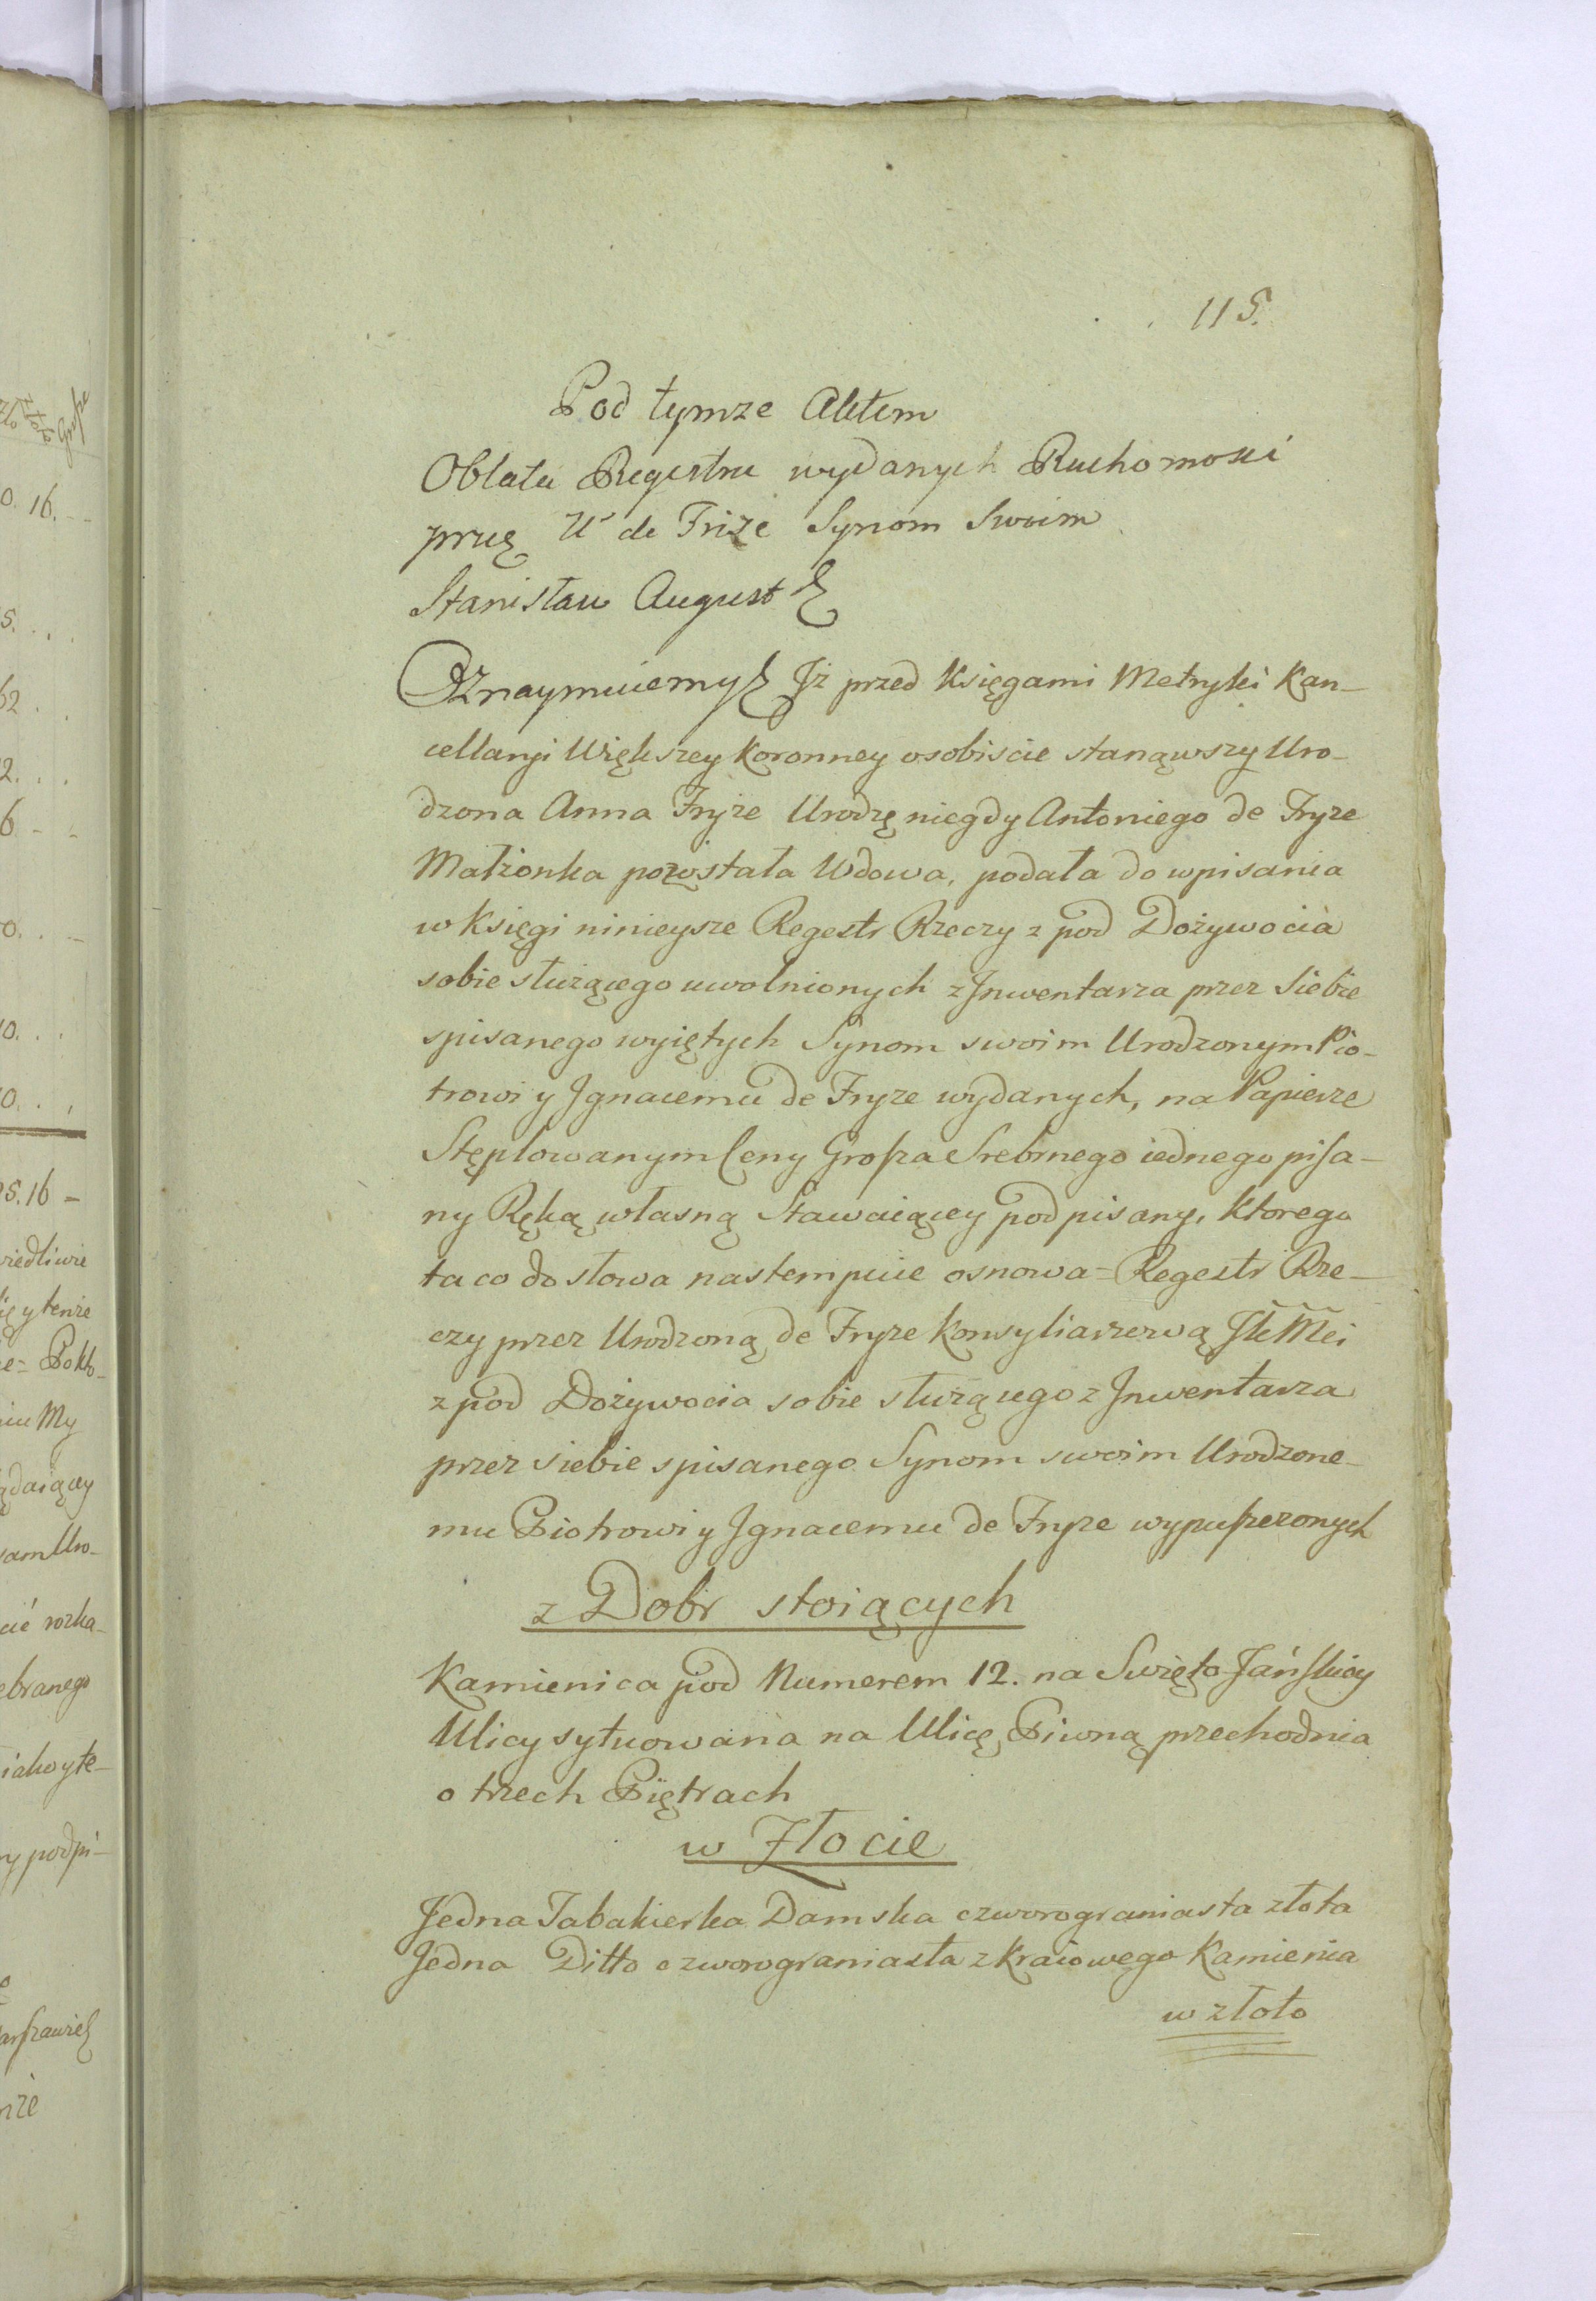 115.
Pod tymze Aktem
Oblata Regestru wydanych Ruchomosci
przez Ur de Frize Synom Swoim
Stanisław August &
Oznaymuiemy & Jż przed Księgami Metryki Kan-
cellaryi Większey Koronney osobiscie stanąwszy Uro-
dzona Anna Fryze Urodzę niegdy Antoniego de Fryze
Małżonka pozostała Wdowa, podała do wpisania
w Księgi ninieysze Regestr Rzeczy z pod Dożywocia
sobie służącego uwolnionych z Jnwentarza przez Siebie
spisanego wyiętych Synom swoim Urodzonym Pio-
trowi y Jgnacemu de Fryze wydanych, na Papierze
Stęplowanym Ceny Grosza Srebrnego iednego pisa-
ny Ręką własną Stawaiącey podpisany, ktorego
ta co do słowa nastempuie osnowa = Regestr Rze-
czy przez Urodzoną de Fryze Konsyliarzową JKMci
z pod Dożywocia sobie służącego z Jnwentarza
przez siebie spisanego Synom swoim Urodzone-
mu Piotrowi y Jgnacemu de Fryze wypuszczonych
z Dobr stoiących
Kamienica pod Numerem 12. na Swięto Jańskiey
Ulicy sytuowana na Ulicę Piwną przechodnia
o trzech Piętrach
w Złocie
Jedna Tabakierka Damska czworograniasta złota
Jedna Ditto czworograniasta z kraiowego Kamienia
w złoto
0. 16.
62 . .
2. . .
10. . .
5. 16 -
iedliwie
ię y tenże
Pokło-
My
daiący
am Uro-
cić rozka-
ebranego
iako y te-
y podpi-